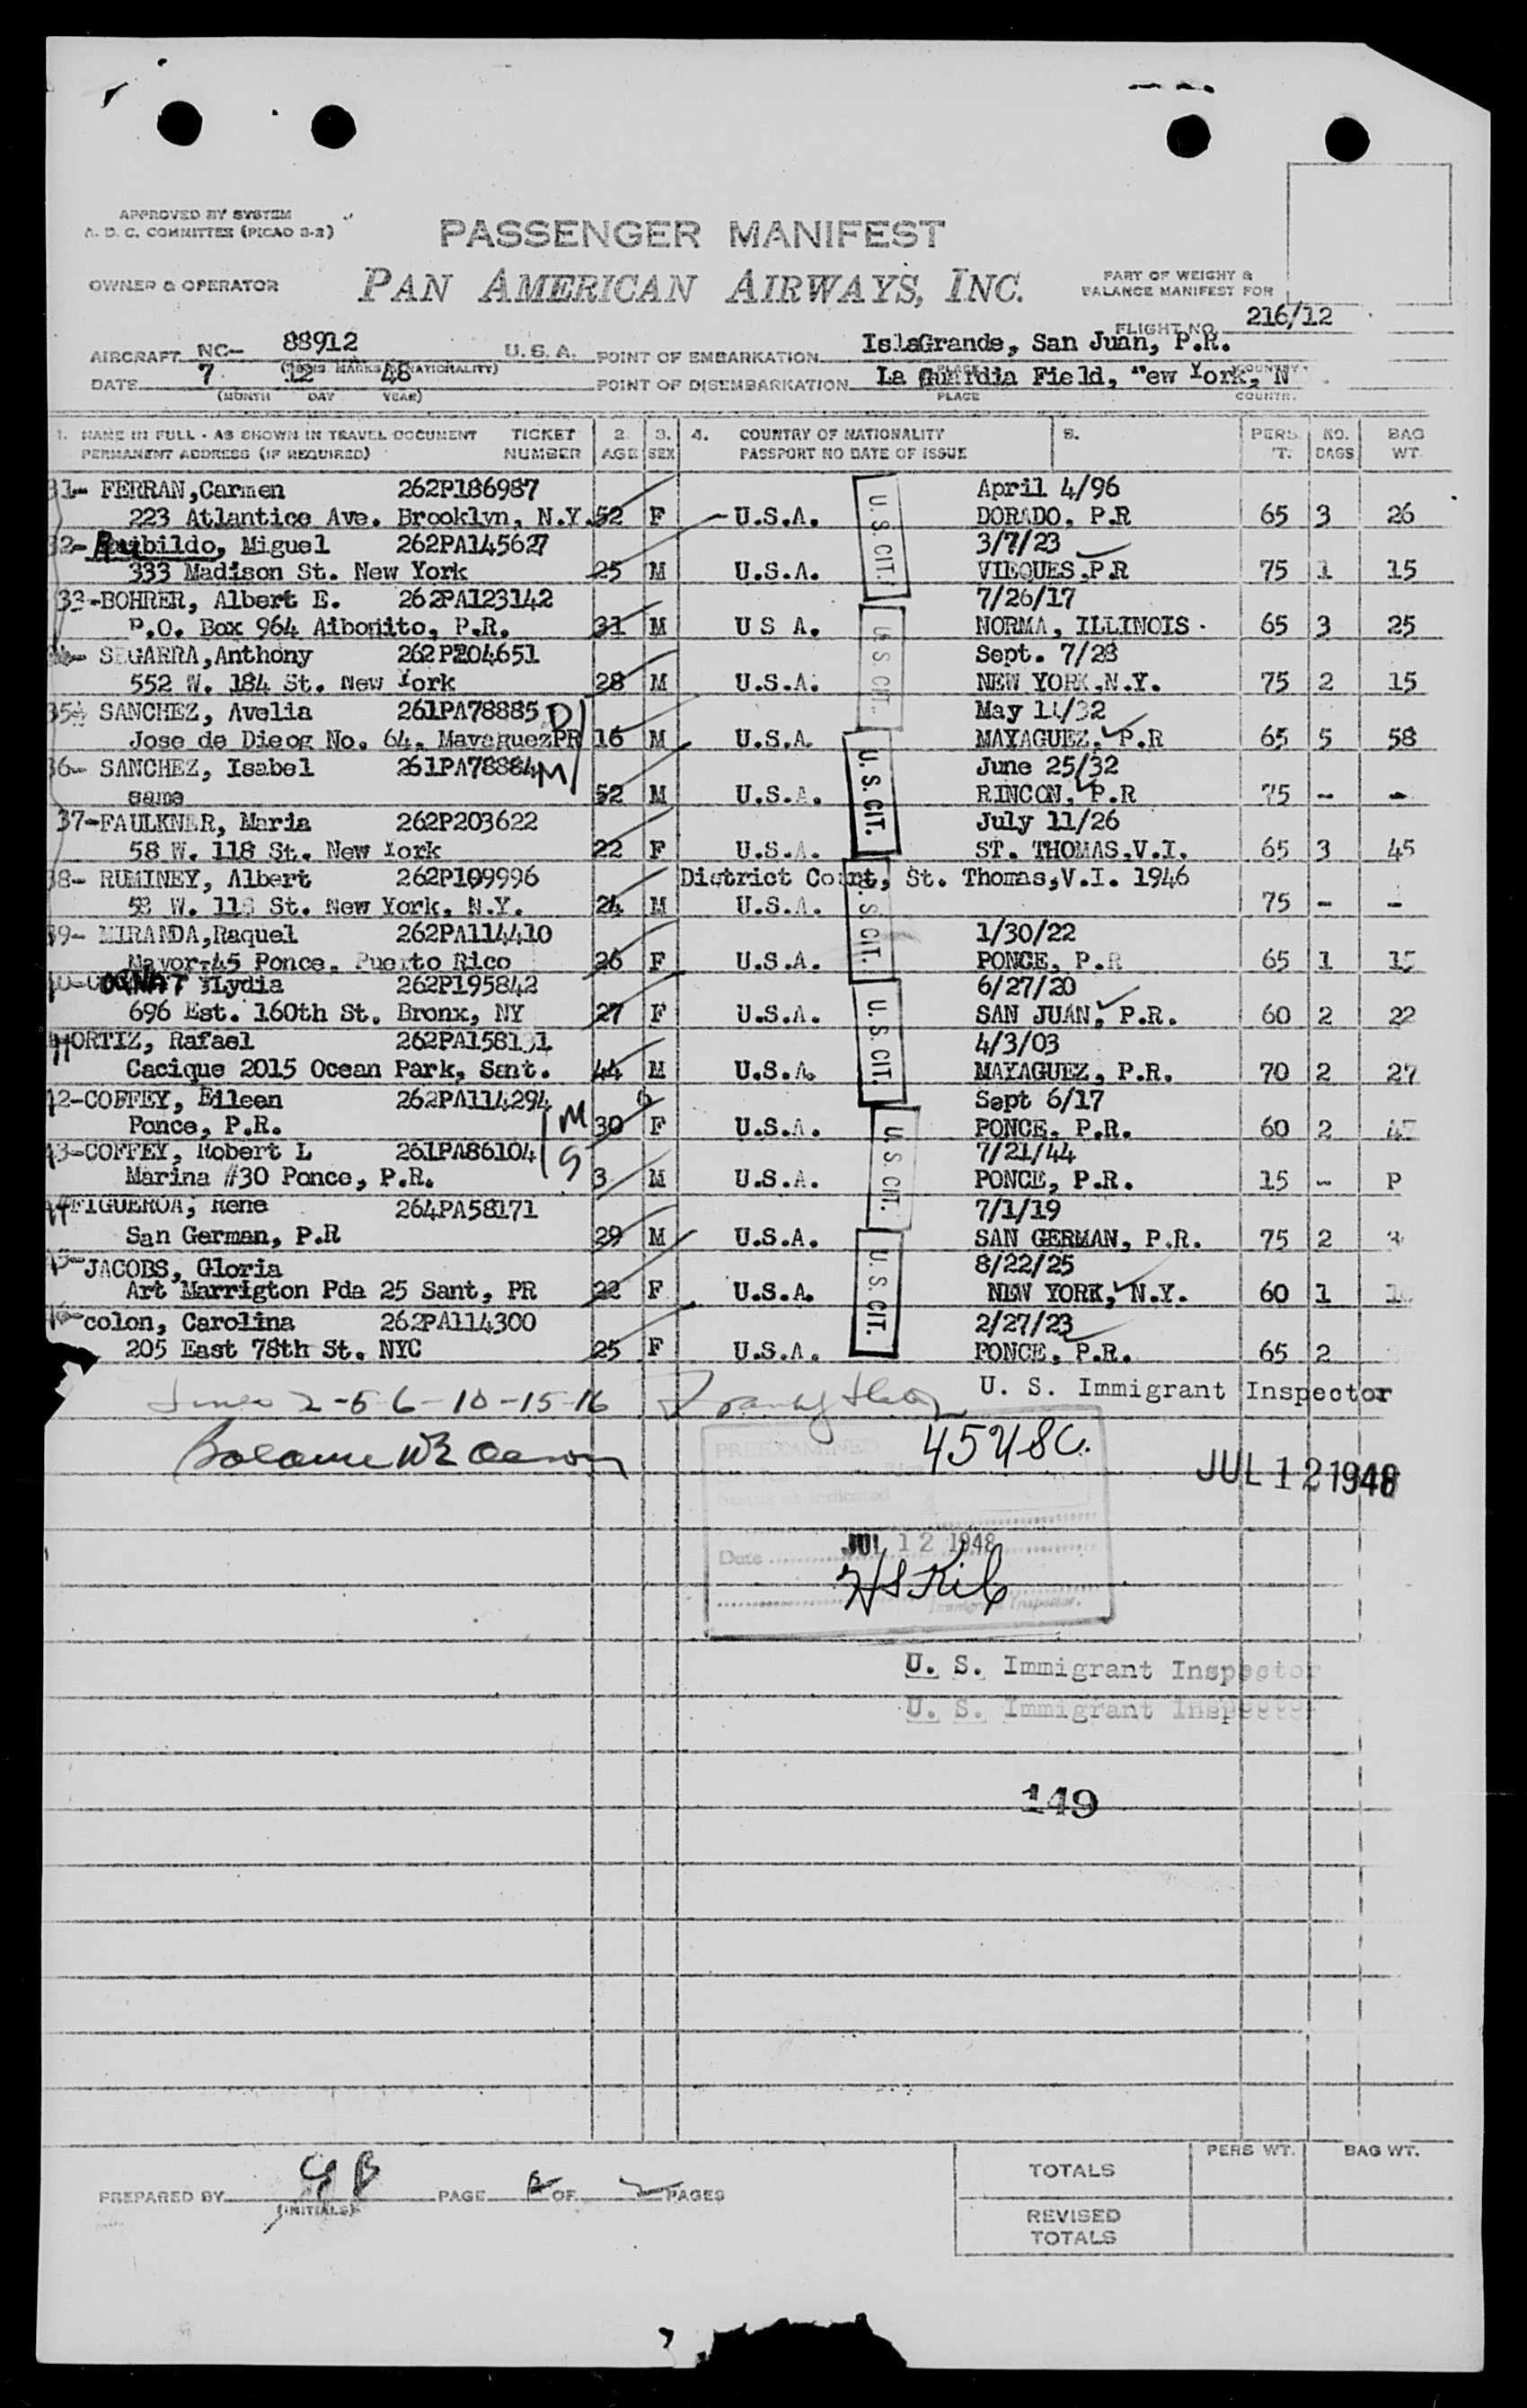 APPROVED BY SYSTEM
A. D. C. COMMITTEE (PICAO 3-2)
PASSENGER MANIFEST
OWNER & OPERATOR
PAN AMERICAN AIRWAYS, INC.
PART OF WEIGHT &
BALANCE MANIFEST FOR
FLIGHT NO. 216/12
AIRCRAFT NC- 88912 U. S. A. POINT OF EMBARKATION IslaGrande, San Juan, P.R.
DATE 7 12 48 POINT OF DISEMBARKATION La Guardia Field, "ew York, N
(MONTH DAY YEAR) PLACE
1. NAME IN FULL - AS SHOWN IN TRAVEL DOCUMENT TICKET 2. 3. 4. COUNTRY OF NATIONALITY 5. PERS. NO. BAG
PERMANENT ADDRESS (IF REQUIRED) NUMBER AGE SEX PASSPORT NO DATE OF ISSUE 'T. BAGS WT.
31- FERRAN,Carmen 262P186987 April 4/96
223 Atlantice Ave. Brooklyn, N.Y. 52 F U.S.A. DORADO, P.R 65 3 26
32- Rubildo, Miguel 262PA145627 3/7/23
333 Madison St. New York 25 M U.S.A. VIEQUES,P.R 75 1 15
33-BOHRER, Albert E. 262PA123142 7/26/17
P.O. Box 964 Aibonito, P.R. 31 M U S A. NORMA, ILLINOIS 65 3 25
SEGARRA,Anthony 262P204651 Sept. 7/28
552 W. 184 St. New York 28 M U.S.A. NEW YORK,N.Y. 75 2 15
35- SANCHEZ, Avelia 261PA78885 D May 11/32
Jose de Dieog No. 64, MayaguezPR 16 M U.S.A. MAYAGUEZ, P.R 65 5 58
36- SANCHEZ, Isabel 261PA78884 M June 25/32
same 52 M U.S.A. RINCON, P.R 75 - -
37-FAULKNER, Maria 262P203622 July 11/26
58 W. 118 St. New York 22 F U.S.A. ST. THOMAS,V.I. 65 3 45
38- RUMINEY, Albert 262P109996 District Court, St. Thomas,V.I. 1946
58 W. 118 St. New York, N.Y. 24 M U.S.A. 75 - -
39- MIRANDA,Raquel 262PA114410 1/30/22
Mayor-45 Ponce, Puerto Rico 26 F U.S.A. PONCE, P.R 65 1 15
Lydia 262P195842 6/27/20
696 Est. 160th St. Bronx, NY 27 F U.S.A. SAN JUAN, P.R. 60 2 22
41 ORTIZ, Rafael 262PA158131 4/3/03
Cacique 2015 Ocean Park, Sant. 44 M U.S.A. MAYAGUEZ, P.R. 70 2 27
42-COFFEY, Eileen 262PA114294 M Sept 6/17
Ponce, P.R. 30 F U.S.A. PONCE, P.R. 60 2
43-COFFEY, Robert L 261PA86104 S 7/21/44
Marina #30 Ponce, P.R. 3 M U.S.A. PONCE, P.R. 15 - P
44 FIGUEROA, Rene 264PA58171 7/1/19
San German, P.R 29 M U.S.A. SAN GERMAN, P.R. 75 2
JACOBS, Gloria 8/22/25
Art Marrigton Pda 25 Sant, PR 22 F U.S.A. NEW YORK, N.Y. 60 1
colon, Carolina 262PA114300 2/27/23
205 East 78th St. NYC 25 F U.S.A. PONCE, P.R. 65 2
U. S. CIT.
U. S. CIT.
U. S. CIT.
U. S. CIT.
U. S. CIT.
U. S. CIT.
U. S. CIT.
2-5-6-10-15-16 U. S. Immigrant Inspector
45 USC.
PREEXAMINED
Status as indicated
JUL 12 1948
Date JUL 12 1948
Immigrant Inspector.
U. S. Immigrant Inspector
U. S. Immigrant Inspector
149
PREPARED BY GB PAGE 2 OF 2 PAGES
(INITIALS)
PERS WT. BAG WT.
TOTALS
REVISED
TOTALS